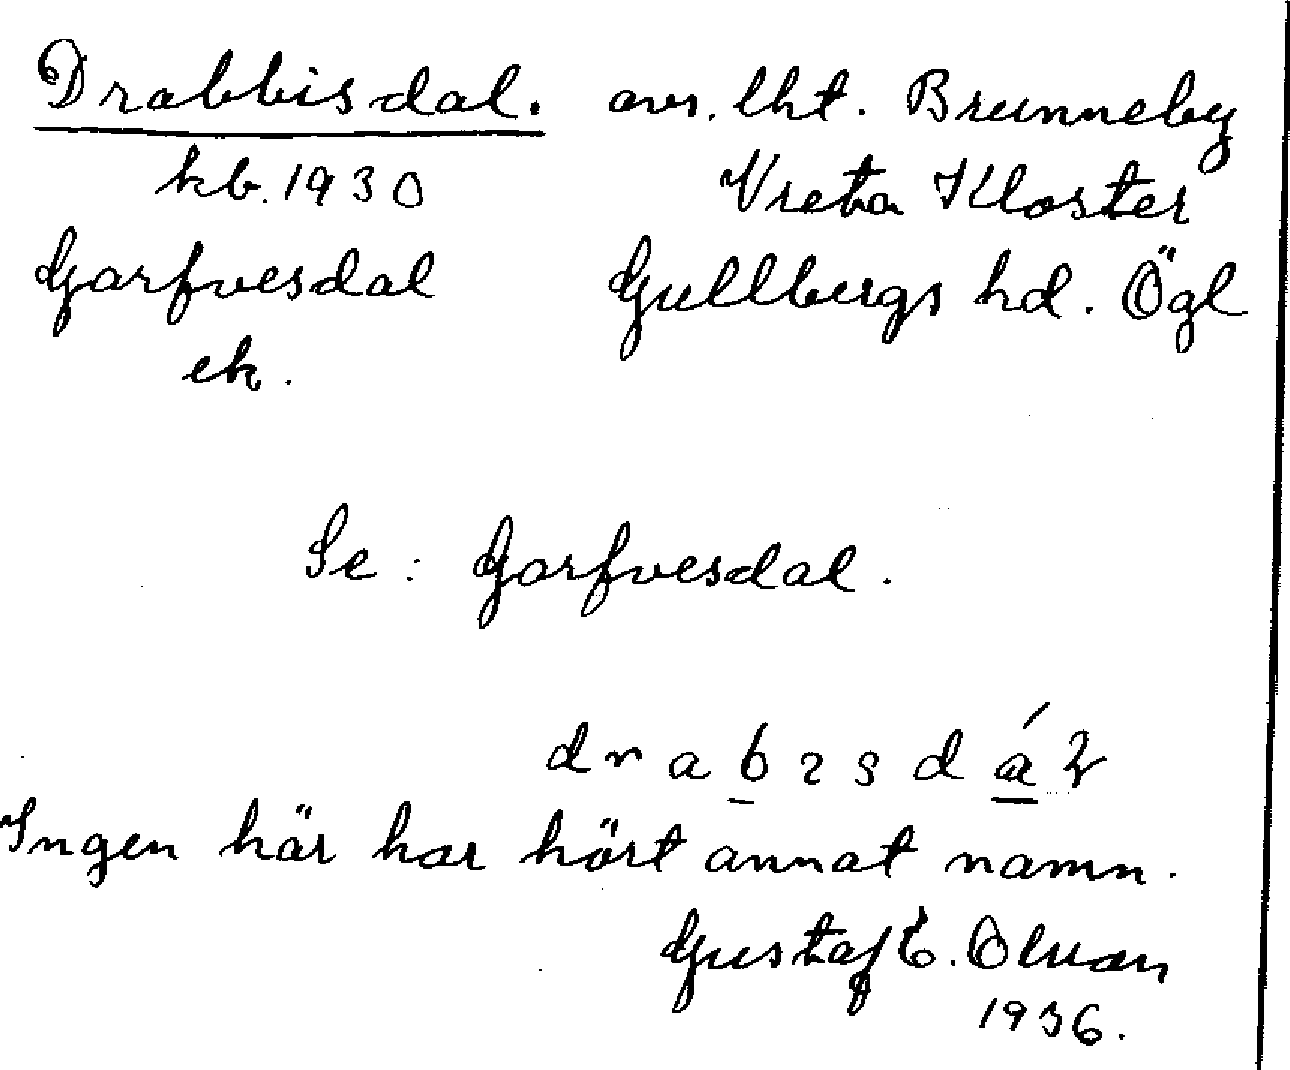 Drabbisdal. avs. lht. Brunneby
kb. 1930 Vreta Kloster
Garfvesdal Gullbergs hd. Ögl
ek.
Se: Garfvesdal.
Ingen här har hört annat namn.
Gustaf E.
1936.